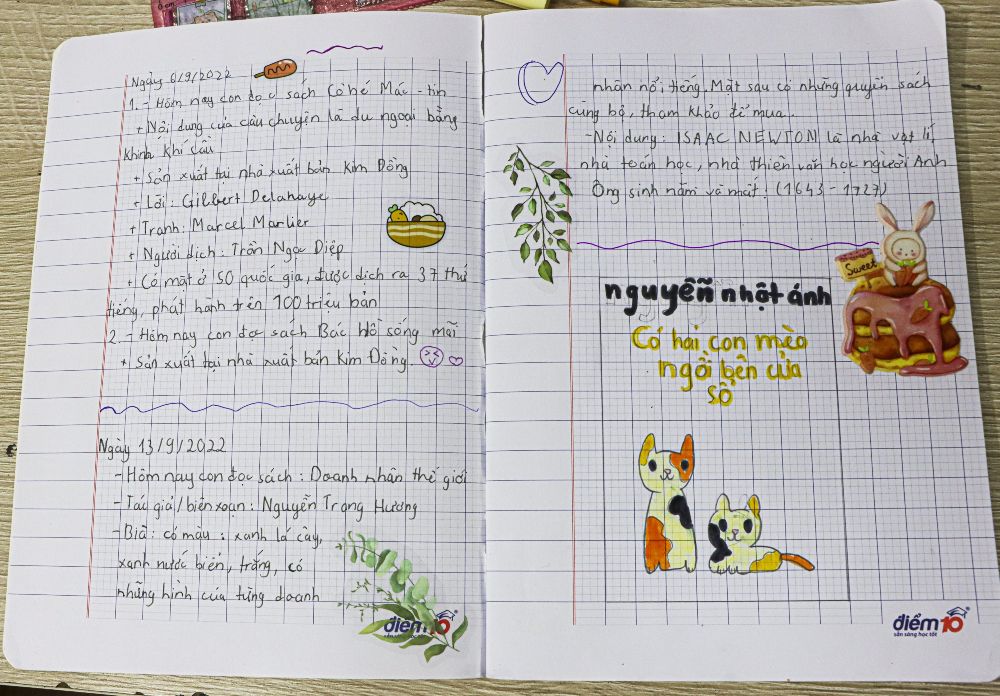 Ngày 6/9/2022
1. - Hôm nay con đọc sách Cô bé Mác - tin
+ Nội dung của câu chuyện là du ngoại bằng
khinh khí cầu
+ Sản xuất tại nhà xuất bản Kim Đồng
+ Lời: Gilbert Delahaye
+ Tranh: Marcel Marlier
+ Người dịch: Trần Ngọc Diệp
+ Có mặt ở 50 quốc gia, được dịch ra 37 thứ
tiếng, phát hành trên 100 triệu bản
2. - Hôm nay con đọc sách Bác Hồ sống mãi
+ Sản xuất tại nhà xuất bản Kim Đồng.
Ngày 13/9/2022
- Hôm nay con đọc sách: Doanh nhân thế giới
- Tác giả/biên xoạn: Nguyễn Trang Hương
- Bìa: có màu: xanh lá cây,
xanh nước biển, trắng, có
những hình của từng doanh
điểm10
nhân nổi tiếng. Mặt sau có những quyển sách
cùng bộ, tham khảo để mua.
- Nội dung: ISAAC NEWTON là nhà vật lí,
nhà toán học, nhà thiên văn học người Anh
Ông sinh năm và mất: (1643 - 1727)
Sweet
nguyễn nhột ánh
Có hai con mèo
ngồi bên cửa
sổ
điểm10
sẵn sàng học tốt